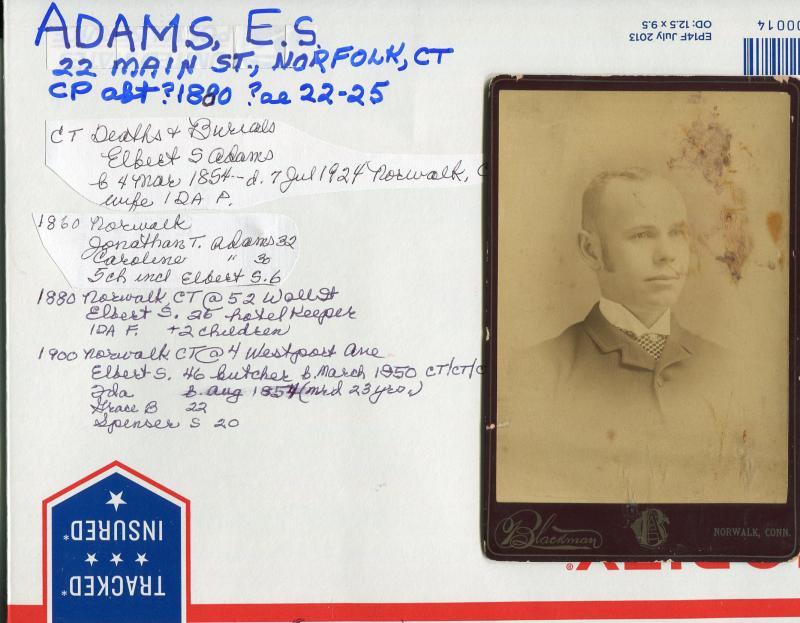 ADAMS, E.S.
22 MAIN ST., NORFOLK, CT
CP abt ?1880 ?ae 22-25
EP14F July 2013
OD: 12.5 x 9.5
00014
CT Deaths & Burials
Elbert S Adams
b 4 Mar 1854 - d. 7 Jul 1924 Norwalk, C
wife IDA P.
1860 Norwalk
Jonathan T. Adams 32
Caroline " 30
5ch incl Elbert S. 6
1880 Norwalk, CT @ 52 Wall St
Elbert S. 25 hotel Keeper
IDA F. +2 children
1900 Norwalk CT @ 4 Westport Ave
Elbert S. 46 butcher b. March 1850 CT/CT/C
Ida b. Aug 1854 (mrd 23 yrs)
Grace B 22
Spenser S 20
Blackman
NORWALK, CONN.
TRACKED*
INSURED*